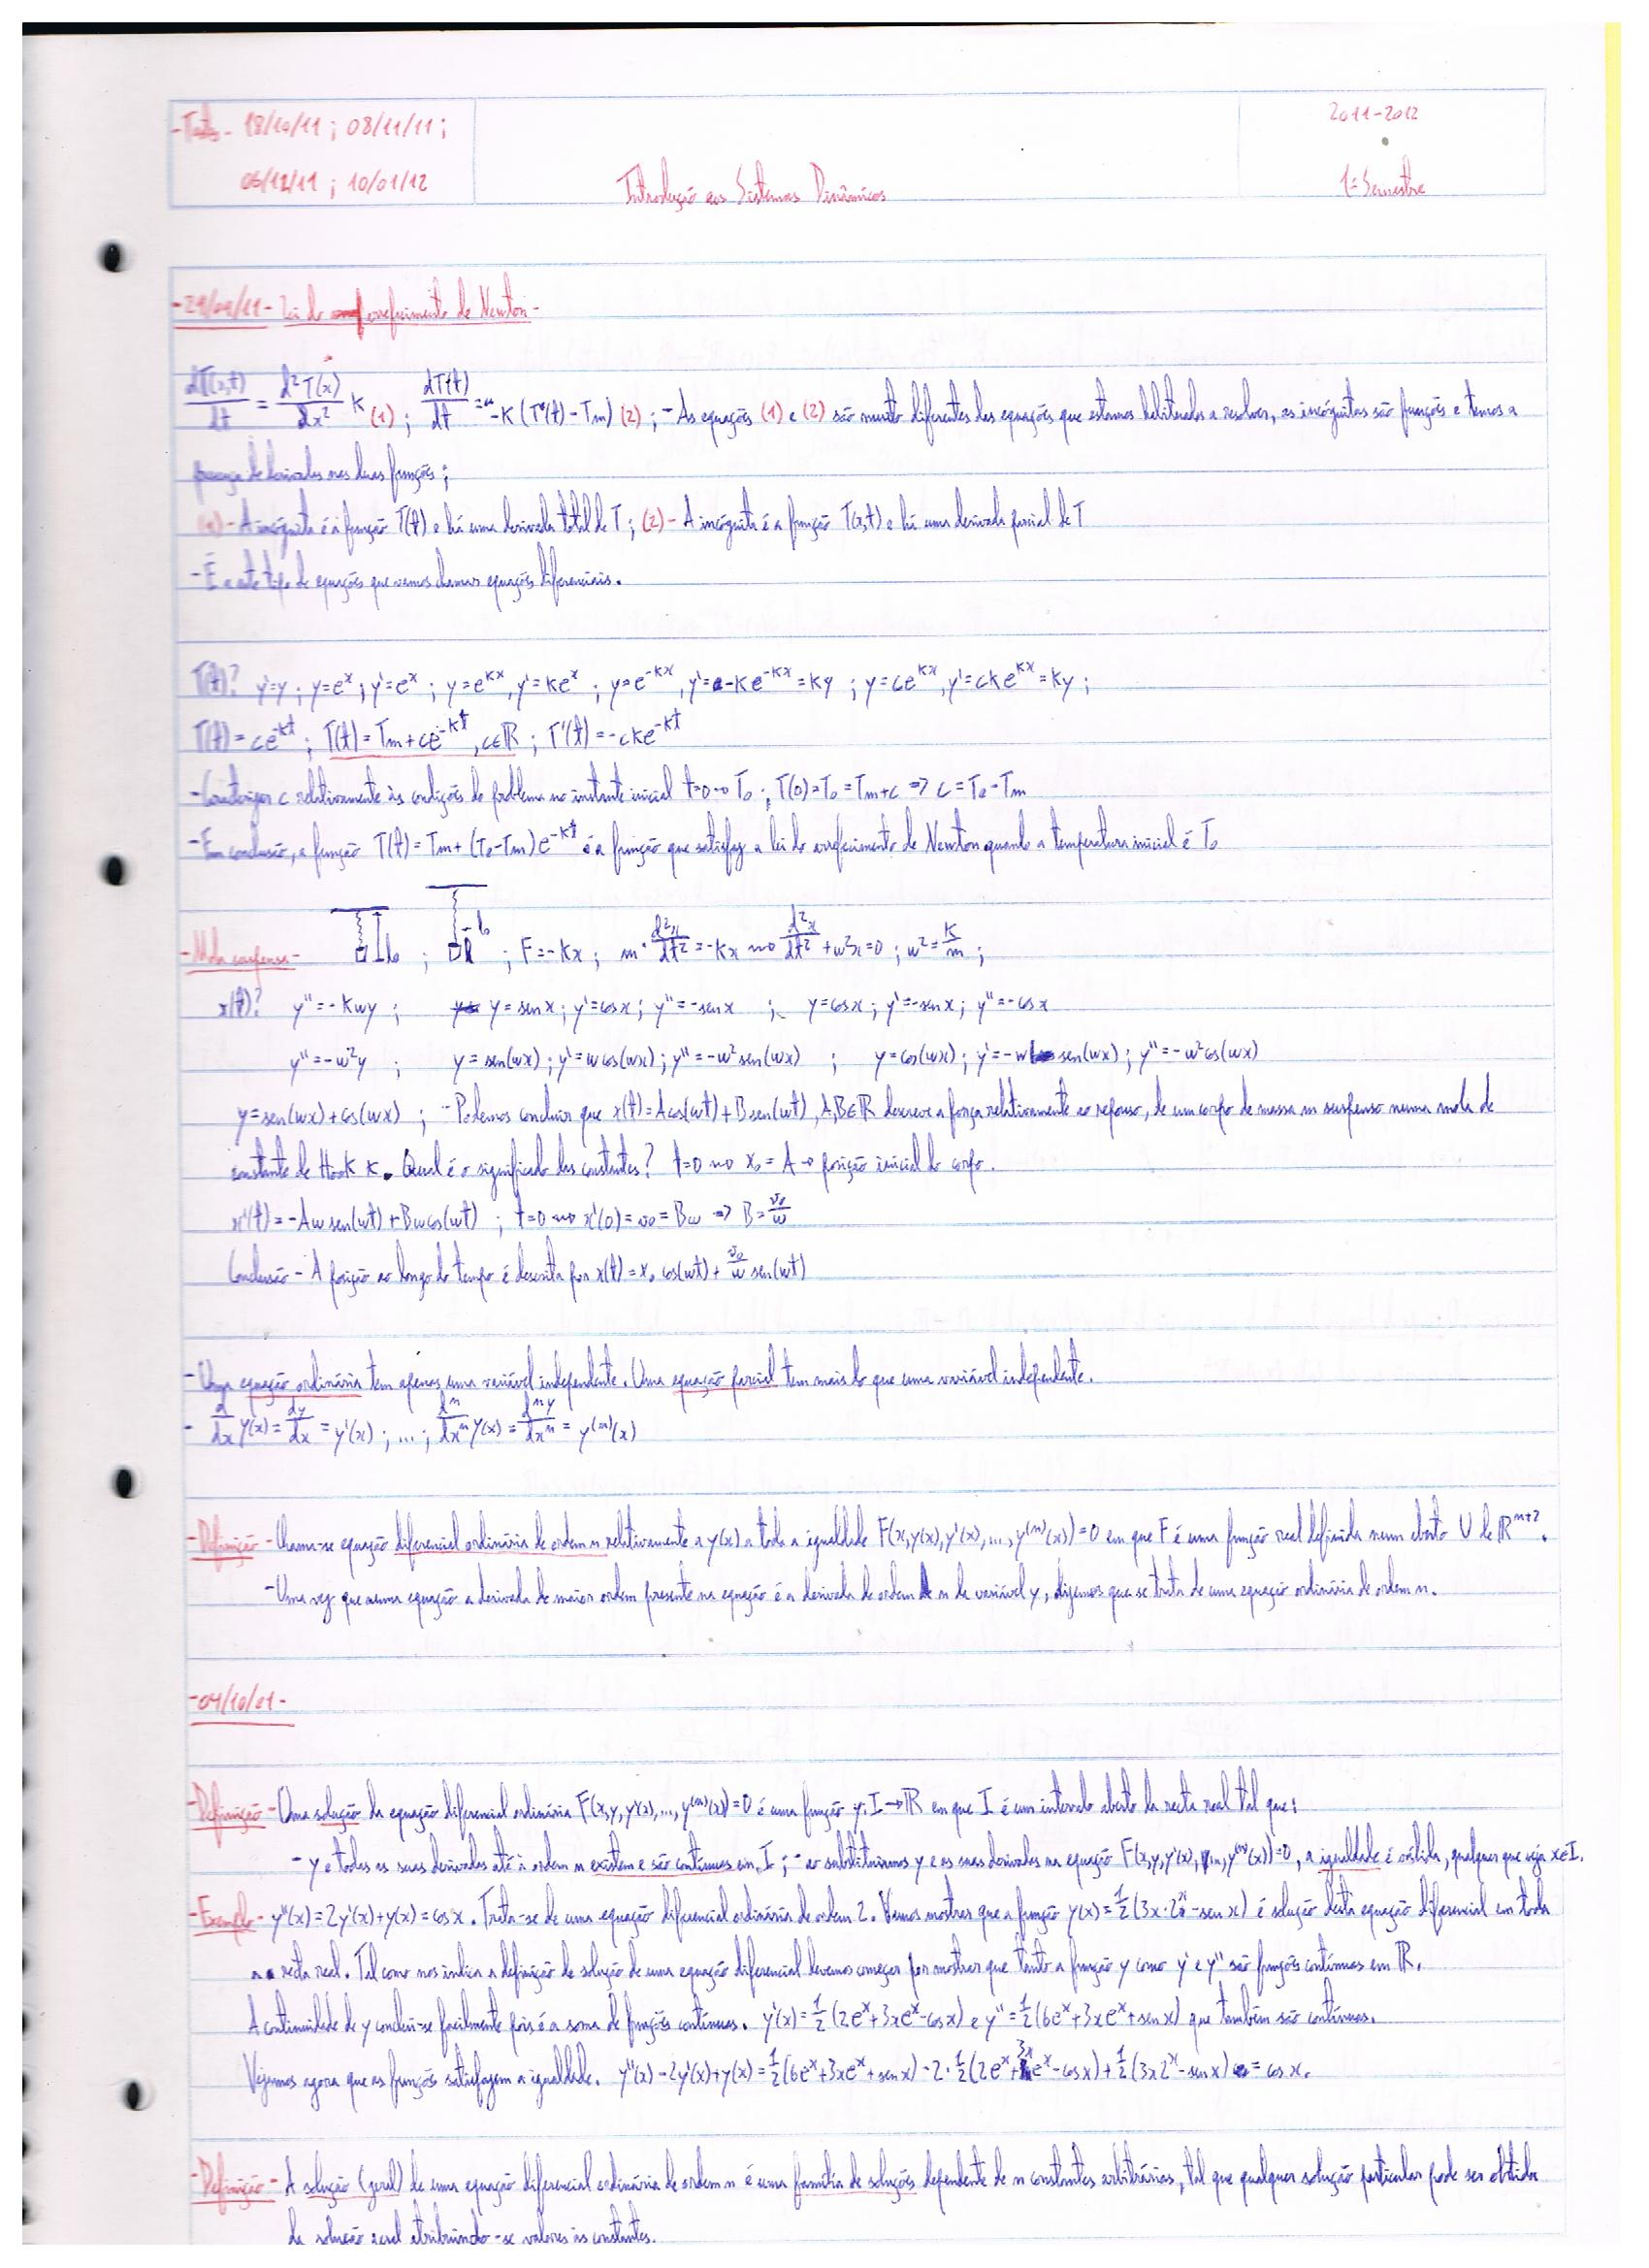 -Testes- 18/10/11 ; 08/11/11 ;
06/12/11 ; 10/01/12
Introdução aos Sistemas Dinâmicos
2011-2012
1º Semestre
-29/09/11- Lei do arrefecimento de Newton-
dT(x,t)/dt = d²T(x)/dx² K (1) ; dT(t)/dt = -K(T(t)-Tm) (2) ; - As equações (1) e (2) são muito diferentes das equações que estamos habituados a resolver, as incógnitas são funções e temos a
presença de derivadas nas duas funções ;
(1)- A incógnita é a função T(t) e há uma derivada total de T ; (2)- A incógnita é a função T(x,t) e há uma derivada parcial de T
- É a este tipo de equações que vamos chamar equações diferenciais.
T(t)? y'=y ; y=e^x ; y'=e^x ; y=e^{kx}, y'=ke^x ; y=e^{-kx}, y'=-ke^{-kx}=ky ; y=ce^{kx}, y'=cke^{kx}=ky ;
T(t)=ce^{-kt} ; T(t)=Tm+ce^{-kt}, c∈ℝ ; T'(t)=-cke^{-kt}
- c relativamente às condições do problema no instante inicial t=0 → T₀ ; T(0)=T₀=Tm+c ⇒ c=T₀-Tm
- Em conclusão, a função T(t)=Tm+(T₀-Tm)e^{-kt} é a função que satisfaz a lei do arrefecimento de Newton quando a temperatura inicial é T₀
-Mola suspensa- l₀ ; l₀ ; F=-kx ; m·d²x/dt²=-kx ⇝ d²x/dt²+w²x=0 ; w²=k/m ;
x(t)? y''=-kwy ; y=sen x ; y'=cos x ; y''=-sen x ; y=cos x ; y'=-sen x ; y''=-cos x
y''=-w²y ; y=sen(wx) ; y'=w cos(wx) ; y''=-w² sen(wx) ; y=cos(wx) ; y'=-w sen(wx) ; y''=-w² cos(wx)
y=sen(wx)+cos(wx) ; - Podemos concluir que x(t)=A cos(wt)+B sen(wt), A,B∈ℝ descreve a força relativamente ao repouso, de um corpo de massa m suspenso numa mola de
constante de Hook K. Qual é o significado das constantes? t=0 ⇝ x₀=A → posição inicial do corpo.
x'(t)=-Aw sen(wt)+Bw cos(wt) ; t=0 ⇝ x'(0)=v₀=Bw ⇒ B=v₀/w
Conclusão - A posição ao longo do tempo é descrita por x(t)=x₀ cos(wt)+v₀/w sen(wt)
- Uma equação ordinária tem apenas uma variável independente. Uma equação parcial tem mais do que uma variável independente.
- d/dx y(x)=dy/dx=y'(x) ; ... ; dⁿ/dxⁿ y(x)=dⁿy/dxⁿ=y^{(n)}(x)
-Definição- Chama-se equação diferencial ordinária de ordem n relativamente a y(x) a toda a igualdade F(x,y(x),y'(x),...,y^{(n)}(x))=0 em que F é uma função real definida num aberto U de ℝ^{n+2}.
- Uma vez que numa equação a derivada de maior ordem presente na equação é a derivada de ordem n da variável y, dizemos que se trata de uma equação ordinária de ordem n.
-04/10/01-
-Definição- Uma solução da equação diferencial ordinária F(x,y,y'(x),...,y^{(n)}(x))=0 é uma função y:I→ℝ em que I é um intervalo aberto da recta real tal que:
- y e todas as suas derivadas até à ordem n existem e são contínuas em I ; - ao substituirmos y e as suas derivadas na equação F(x,y,y'(x),...,y^{(n)}(x))=0, a igualdade é válida, qualquer que seja x∈I.
-Exemplo- y''(x)=2y'(x)+y(x)=cos x. Trata-se de uma equação diferencial ordinária de ordem 2. Vamos mostrar que a função y(x)=1/2(3x·2^x-sen x) é solução desta equação diferencial em toda
a recta real. Tal como nos indica a definição de solução de uma equação diferencial devemos começar por mostrar que tanto a função y como y' e y'' são funções contínuas em ℝ.
A continuidade de y conclui-se facilmente pois é a soma de funções contínuas. y'(x)=1/2(2e^x+3xe^x-cos x) e y''=1/2(6e^x+3xe^x+sen x) que também são contínuas.
Vejamos agora que as funções satisfazem a igualdade. y''(x)-2y'(x)+y(x)=1/2(6e^x+3xe^x+sen x)-2·1/2(2e^x+3xe^x-cos x)+1/2(3x2^x-sen x)=cos x.
-Definição- A solução (geral) de uma equação diferencial ordinária de ordem n é uma família de soluções dependente de n constantes arbitrárias, tal que qualquer solução particular pode ser obtida
da solução geral atribuindo-se valores às constantes.